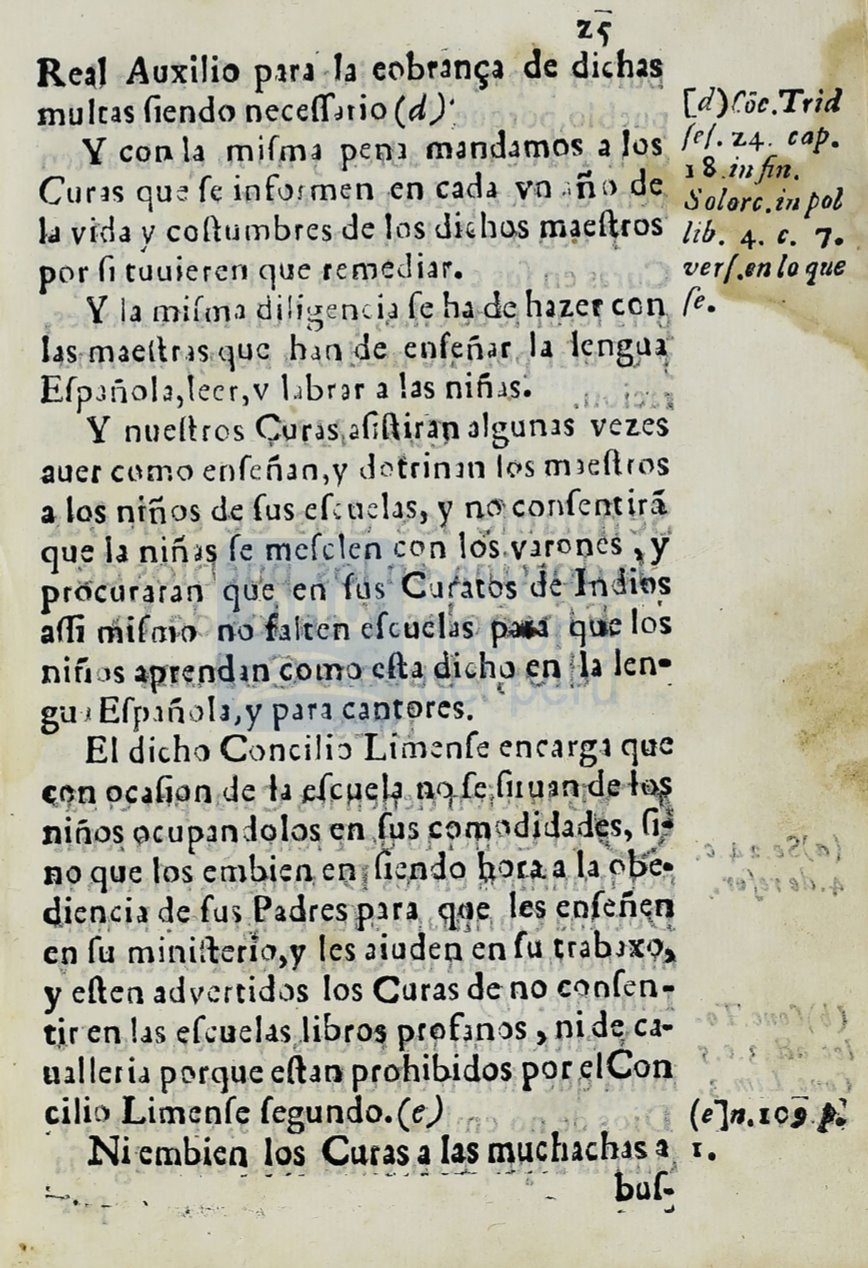 25
Real Auxilio para la cobrança de dichas
multas ſiendo neceſſario (d)
Y con la miſma pena mandamos a los
Curas que ſe informen en cada vn año de
la vida y coſtumbres de los dichos maeſtros
por ſi tuuieren que remediar.
Y la miſma diligencia ſe ha de hazer con
las maeſtras que han de enſeñar la lengua
Eſpañola, leer, y labrar a las niñas.
Y nueſtros Curas aſiſtiran algunas vezes
auer como enſeñan, y dotrinan los maeſtros
a los niños de ſus eſcuelas, y no conſentirã
que la niñas ſe meſclen con los varones, y
procuraran que en ſus Curatos de Indios
aſſi miſmo no falten eſcuelas para que los
niños aprendan como eſta dicho en la len-
gua Eſpañola, y para cantores.
El dicho Concilio Limenſe encarga que
con ocaſion de la eſcuela no ſe ſiruan de los
niños ocupandolos en ſus comodidades, ſi-
no que los embien en ſiendo hora a la obe-
diencia de ſus Padres para que les enſeñen
en ſu miniſterio, y les aiuden en ſu trabaxo,
y eſten advertidos los Curas de no conſen-
tir en las eſcuelas libros profanos, ni de ca-
ualleria porque eſtan prohibidos por el Con
cilio Limenſe ſegundo. (e)
Ni embien los Curas a las muchachas a
buſ-
[d) Cõc. Trid
ſeſ. 24. cap.
18. in fin.
Solorc. in pol
lib. 4. c. 7.
verſ. en lo que
ſe.
(e] n. 109 p.
1.